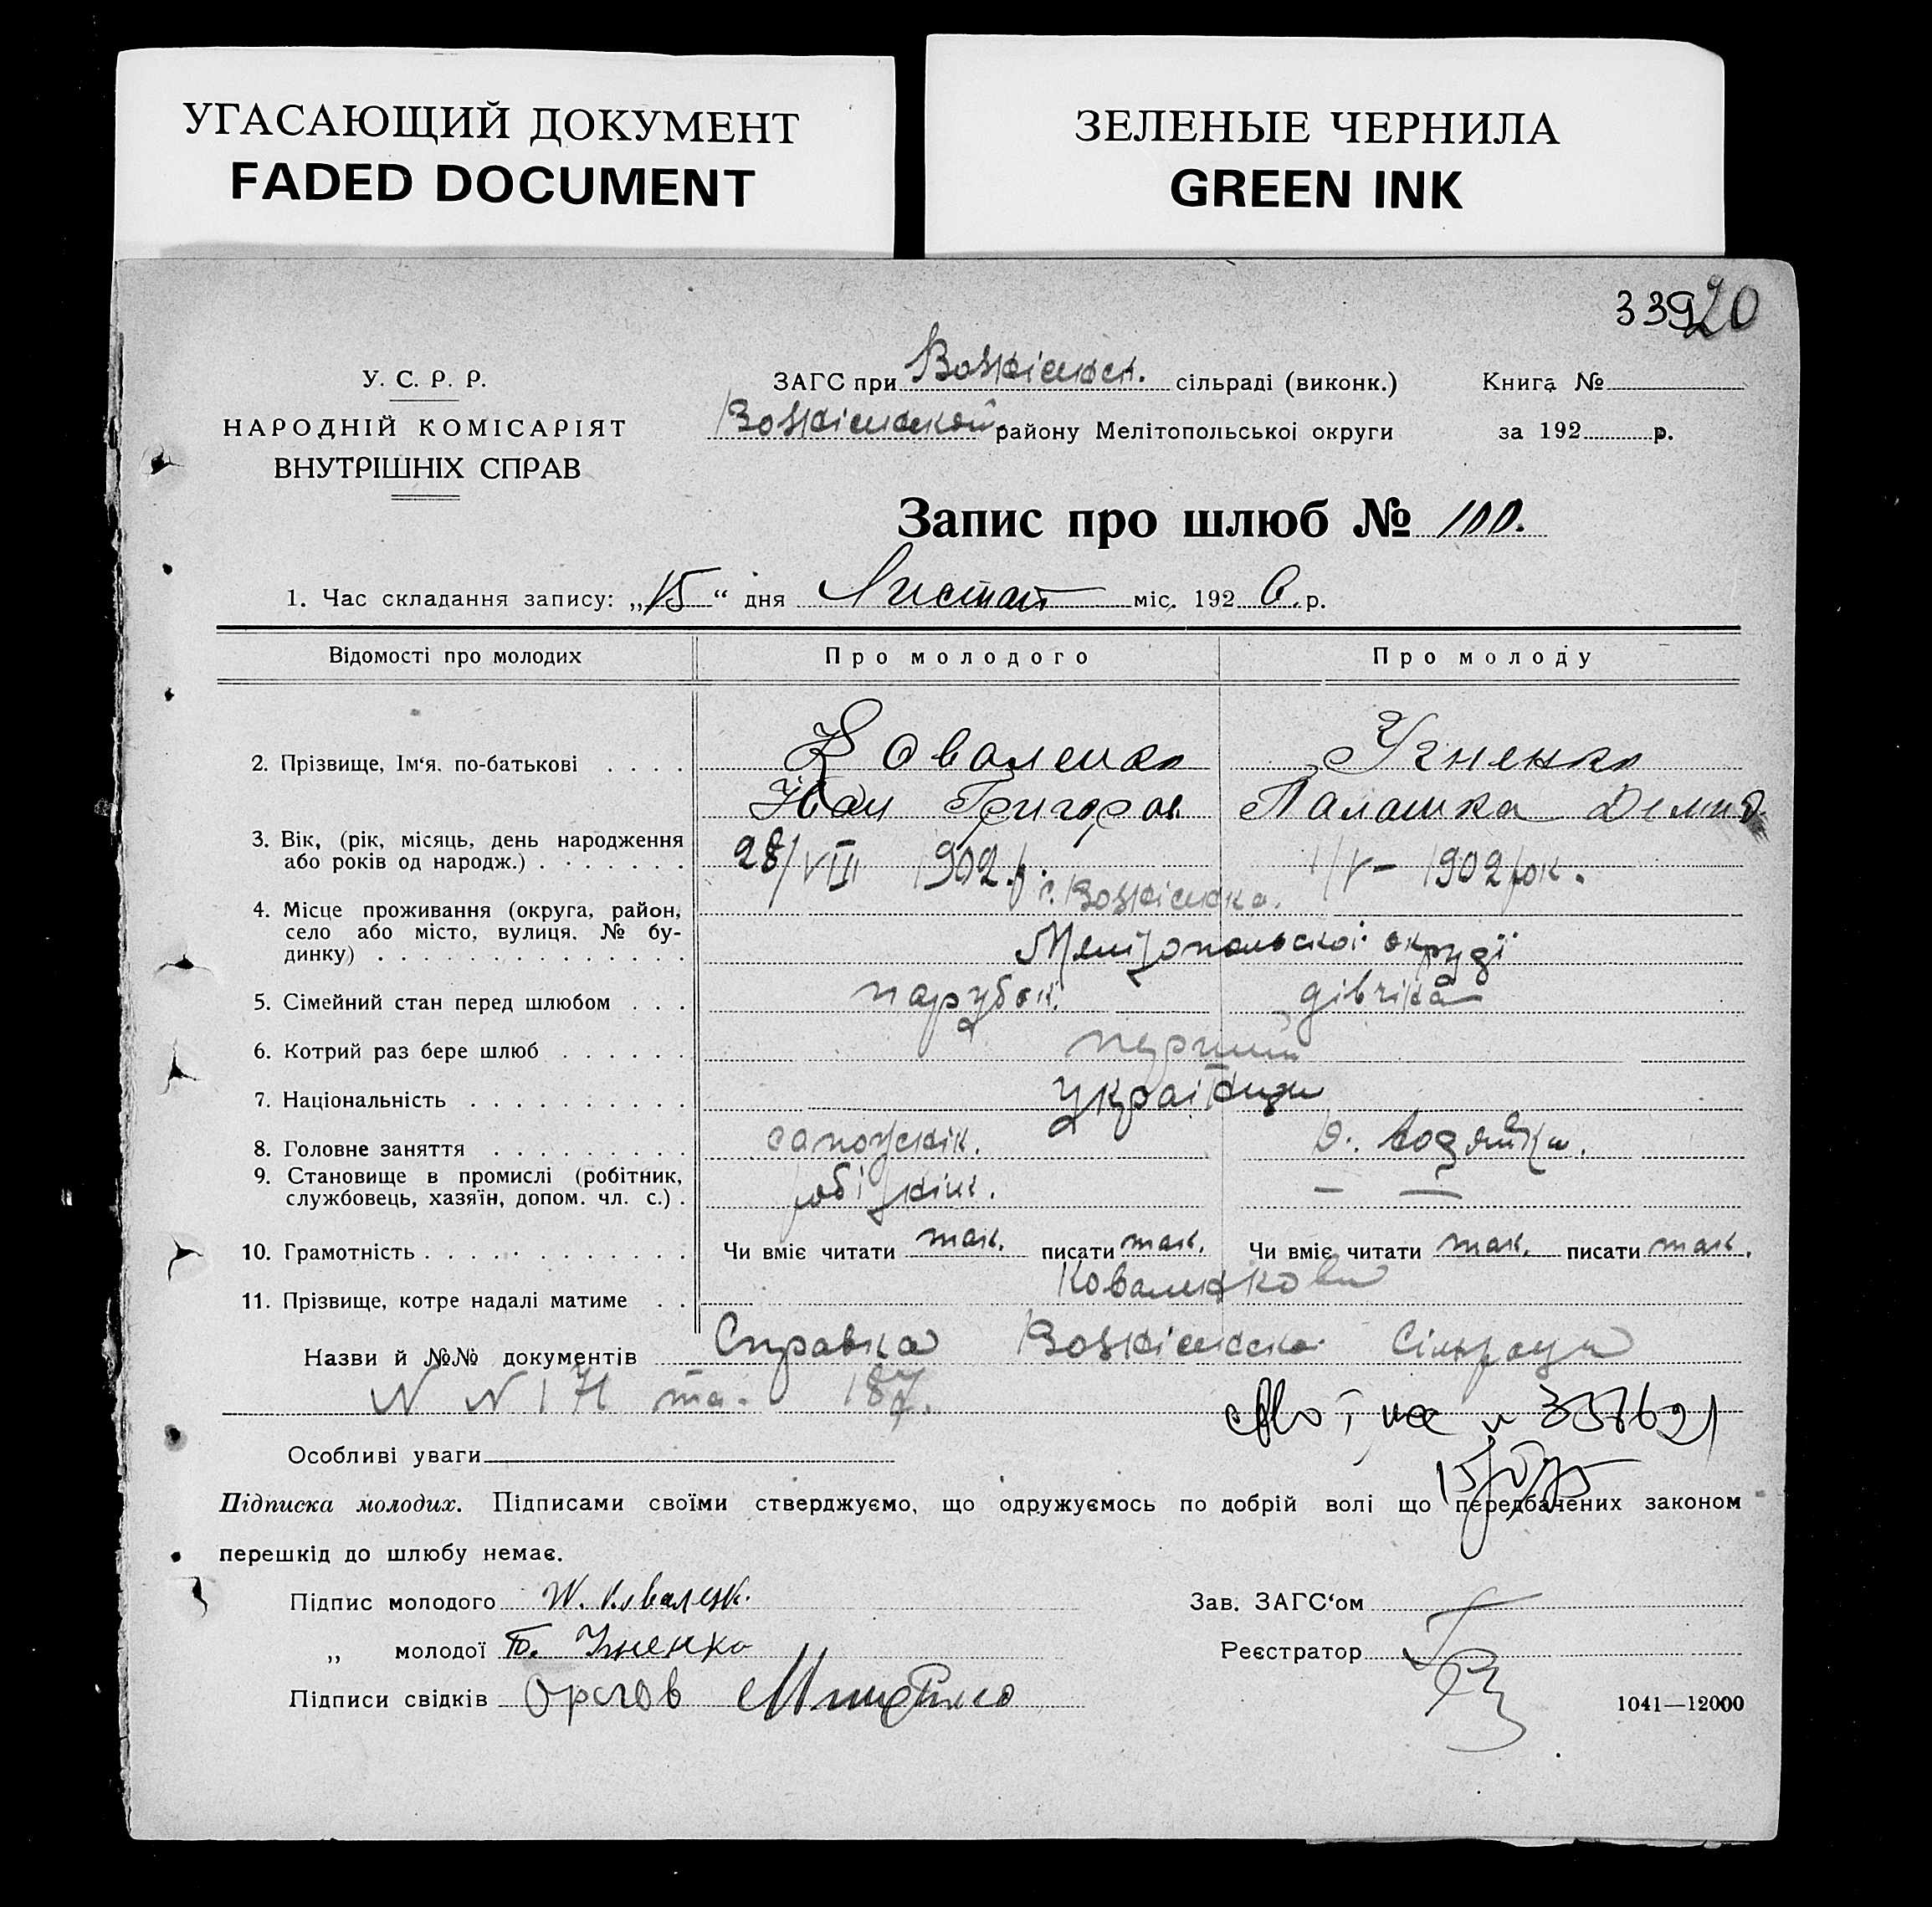 УГАСАЮЩИЙ ДОКУМЕНТ
FADED DOCUMENT
ЗЕЛЕНЫЕ ЧЕРНИЛА
GREEN INK
339 20
У. С. Р. Р.
НАРОДНІЙ КОМІСАРІЯТ
ВНУТРІШНІХ СПРАВ
ЗАГС при сільраді (виконк.) Книга №
району Мелітопольської округи за 192 р.
Запис про шлюб № 100.
1. Час складання запису: „15“ дня Листоп міс. 192 6. р.
Відомості про молодих Про молодого Про молоду
2. Прізвище, Ім‘я. по-батькові Коваленко
Іван Григоров. Палашка Демид.
3. Вік, (рік, місяць, день народження
або років од народж.) 28/VIII 1902 р. 1/V – 1902 рок.
4. Місце проживання (округа, район,
село або місто, вулиця. № бу-
динку) Мелітопольскоі округі
5. Сімейний стан перед шлюбом парубок. дівчина
6. Котрий раз бере шлюб перший
7. Національність українци
8. Головне заняття сапожнік.
9. Становище в промислі (робітник,
службовець, хазяїн, допом. чл. с.) робітник. — —
10. Грамотність Чи вміє читати так. писати так. Чи вміє читати так. писати так.
11. Прізвище, котре надалі матиме Коваленкови
Назви й №№ документів Справка Сільради
N N 171 та 187.
Особливі уваги
Підписка молодих. Підписами своїми стверджуємо, що одружуємось по добрій волі що передбачених законом
перешкід до шлюбу немає.
Підпис молодого Зав. ЗАГС‘ом
„ молодої Реєстратор
Підписи свідків
1041—12000